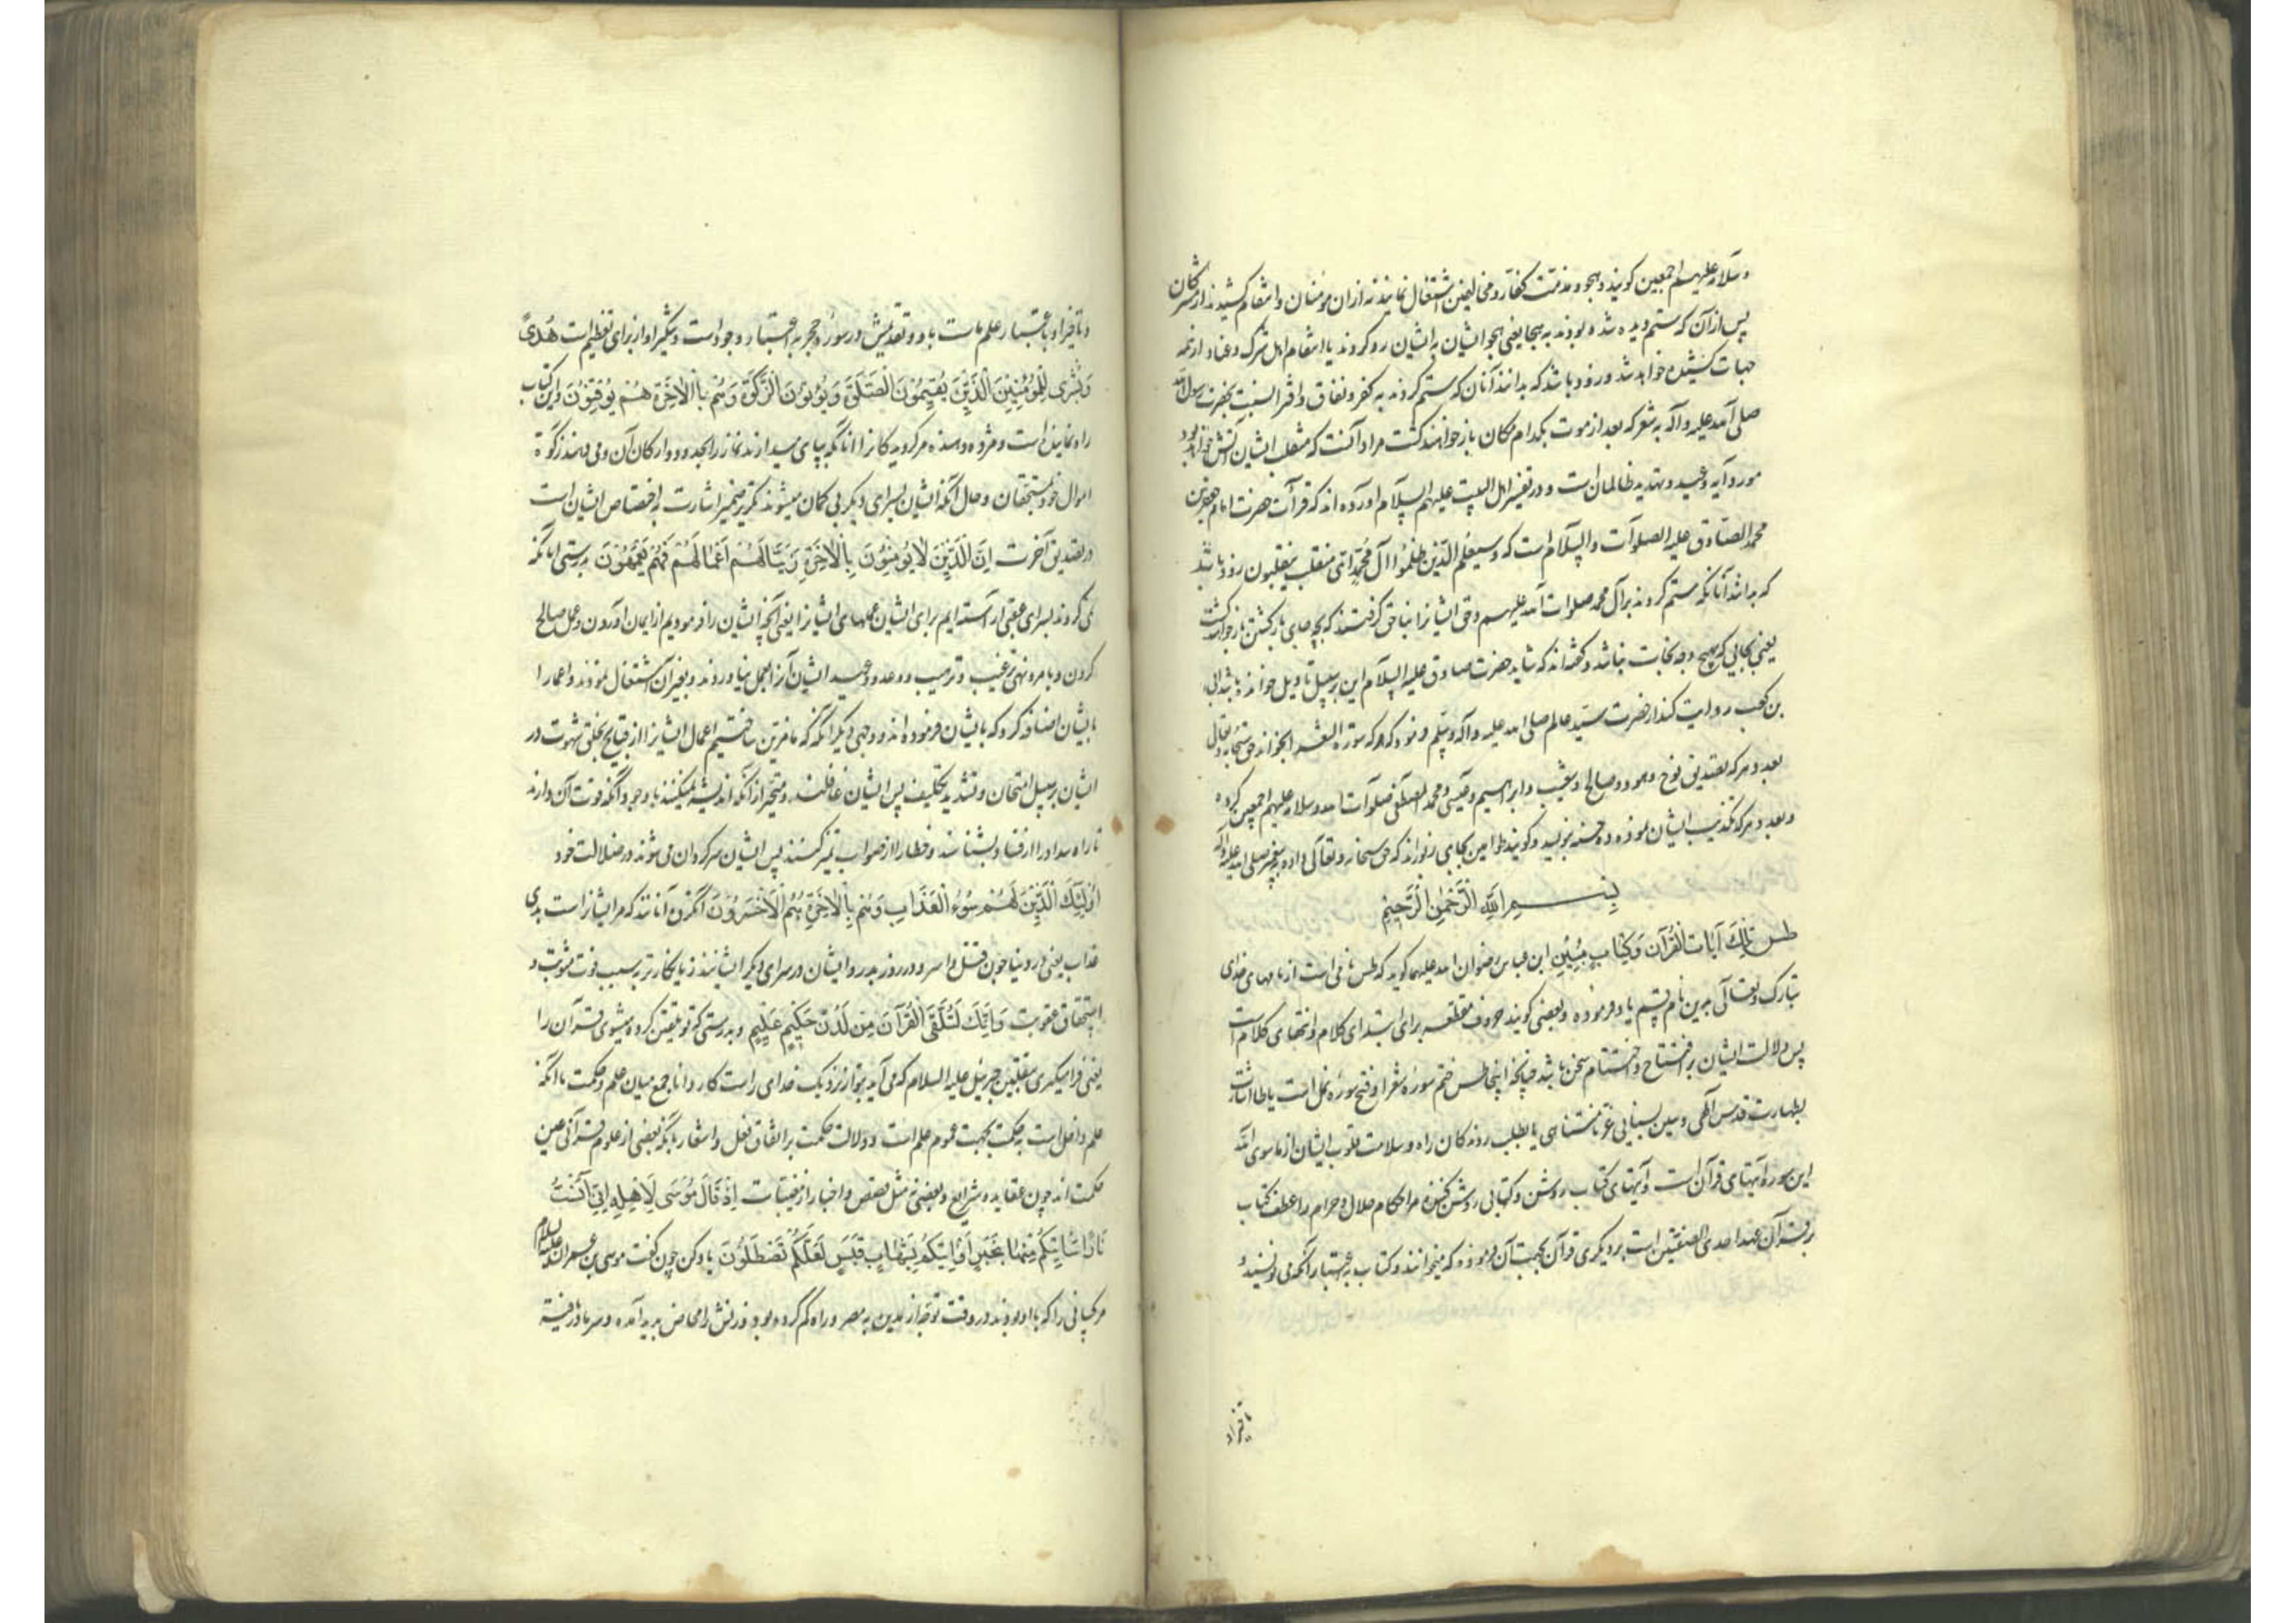 وسلامه علیهم اجمعین کویند و بهجو و مذمت کفار و مخالفین اشتغال نمایند نه ازان مومنان و انتقام کشیدند از مشرکان
پس از آن که ستم دیده شده بودند به هجا یعنی هجو ایشان به ایشان رو کردند یا انتقام اهل شرک و عناد از همه
جهات کشیده خواهد شد و زود باشد که بدانند آنان که ستم کردند به کفر و نفاق و افترا نسبت بحضرت رسول الله
صلی الله علیه و آله به شعر که بعد از موت بکدام مکان باز خواهند کشت مراد آنست که منقلب ایشان آتش خواهد بود
مورد آیه وعید و تهدید ظالمان است و در تفسیر اهل البیت علیهم السلام آورده اند که قرآءت حضرت امام جعفر بن
محمد الصادق علیه الصلوات والسلام است که وسیعلم الذین ظلموا آل محمد ای منقلب ینقلبون زود باشد
که بدانند آنانکه ستم کردند بر آل محمد صلوات الله علیهم و حق ایشانرا بناحق کرفتند که بچه جای بازکشتن باز خواهند کشت
یعنی بجایی که هیچ وجه نجات نباشد و کفته اند که شاید حضرت صادق علیه السلام این بر سبیل تاویل خوانده باشد ابی
بن کعب روایت کند از حضرت سید عالم صلی الله علیه و آله و سلم فرمود که هر که سوره الشعرا بخواند حق سبحانه و تعالی
بعدد هر که تصدیق نوح و هود و صالح و شعیب و ابراهیم و عیسی و محمد المصطفی صلوات الله و سلامه علیهم اجمعین کرده
و بعدد هر که تکذیب ایشان نموده ده حسنه بنویسد و کویند طواسین بجای زبوراند که حق سبحانه و تعالی داده به پیغمبر صلی الله علیه و آله
بسم الله الرحمن الرحیم
طس تلک آیات القرآن وکتاب مبین ابن عباس رضوان الله علیهما کوید که طس نامی است از نامهای خدای
تبارک و تعالی بدین نام قسم یاد فرموده و بعضی کویند حروف مقطعه برای ابتدای کلام و انتهای کلام است
پس دلالت ایشان بر افتتاح و اختتام سخن باشد چنانچه اینجا طس ختم سوره شعرا و فتح سوره نمل است یا طا اشارت
بطهارت قدس الهی و سین بسنایی عز نامتناهی یا بطلب روندکان راه و سلامت قلوب ایشان از ماسوی الله
این سوره آیتهای قرآن است و آیتهای کتاب روشن و کتابی روشن کننده مر احکام حلال و حرام را عطف کتاب
بر قرآن عطف احدی الصفتین است بر دیکری قرآن بجهت آن فرموده که میخوانند و کتاب به اعتبار آنکه می نویسند و
تاخیر او
و تاخیر او باعتبار علم ماست باو و تقدیمش در سوره حجر به اعتبار وجود است و تنکیر او از برای تعظیم است هدی
وبشری للمؤمنین الذین یقیمون الصلوة ویؤتون الزکوة وهم بالاخرة هم یوقنون و این کتاب
راه نماینده است و مژده دهنده مر کرویدکانرا آنانکه بپای میدارند نماز را بحدود و ارکان آن و می دهند زکوة
اموال خود بمستحقان و حال آنکه ایشان بسرای دیکر بی کمان میشوند تکریر ضمیر اشارت به اختصاص ایشان است
در تصدیق آخرت ان الذین لا یؤمنون بالاخرة زینا لهم اعمالهم فهم یعمهون بدرستی آنانکه
نمی کروند بسرای عقبی آراسته ایم برای ایشان عملهای ایشانرا یعنی آنچه ایشان را فرمودیم از ایمان آوردن و عمل صالح
کردن و بامر و نهی و ترغیب و ترهیب و وعد و وعید ایشان آنرا بعمل نیاوردند و بغیر آن اشتغال نمودند و اعمال را
بایشان اضافه کرد که بایشان فرموده اند و وجهی دیکر آنکه که ما مزین ساختیم اعمال ایشانرا از قبایح بخلق شهوت در
ایشان بر سبیل امتحان و تشدید تکلیف پس ایشان غافلند و متحیر از آنکه اندیشه نمیکنند با وجود آنکه قوت آن دارند
تا راه سداد را از فساد بشناسند و خطا را از صواب تمیز کنند پس ایشان سرکردان می شوند در ضلالت خود
اولئک الذین لهم سوء العذاب وهم بالاخرة هم الاخسرون آنکروه آنانند که مر ایشانراست بدی
عذاب یعنی در دنیا چون قتل و اسر در روز بدر و ایشان در سرای دیکر ایشانند زیانکارتر به سبب فوت مثوبت و
استحقاق عقوبت وانک لتلقی القرآن من لدن حکیم علیم و بدرستی که تو تلقین کرده میشوی قرآن را
یعنی فرامیکیری بتلقین جبرئیل علیه السلام که می آید بتو از نزدیک خدای راست کار دانا جمع میان علم و حکمت با آنکه
علم داخل است به حکمت بجهت عموم علم است و دلالت حکمت بر اتقان فعل و اشعار بانکه بعضی از علوم قرآنی عین
حکمت اند چون عقاید و شرایع و بعضی نه مثل قصص و اخبار از مغیبات اذ قال موسی لاهله انی آنست
نارا ساتیکم منها بخبر او اتیکم بشهاب قبس لعلکم تصطلون یاد کن چون کفت موسی بن عمران علیه السلام
مر کسانی را که با او بودند در وقت توجه از مدین به مصر و راه کم کرده بود و زنش را مخاض پدید آمده و سرما دریافته